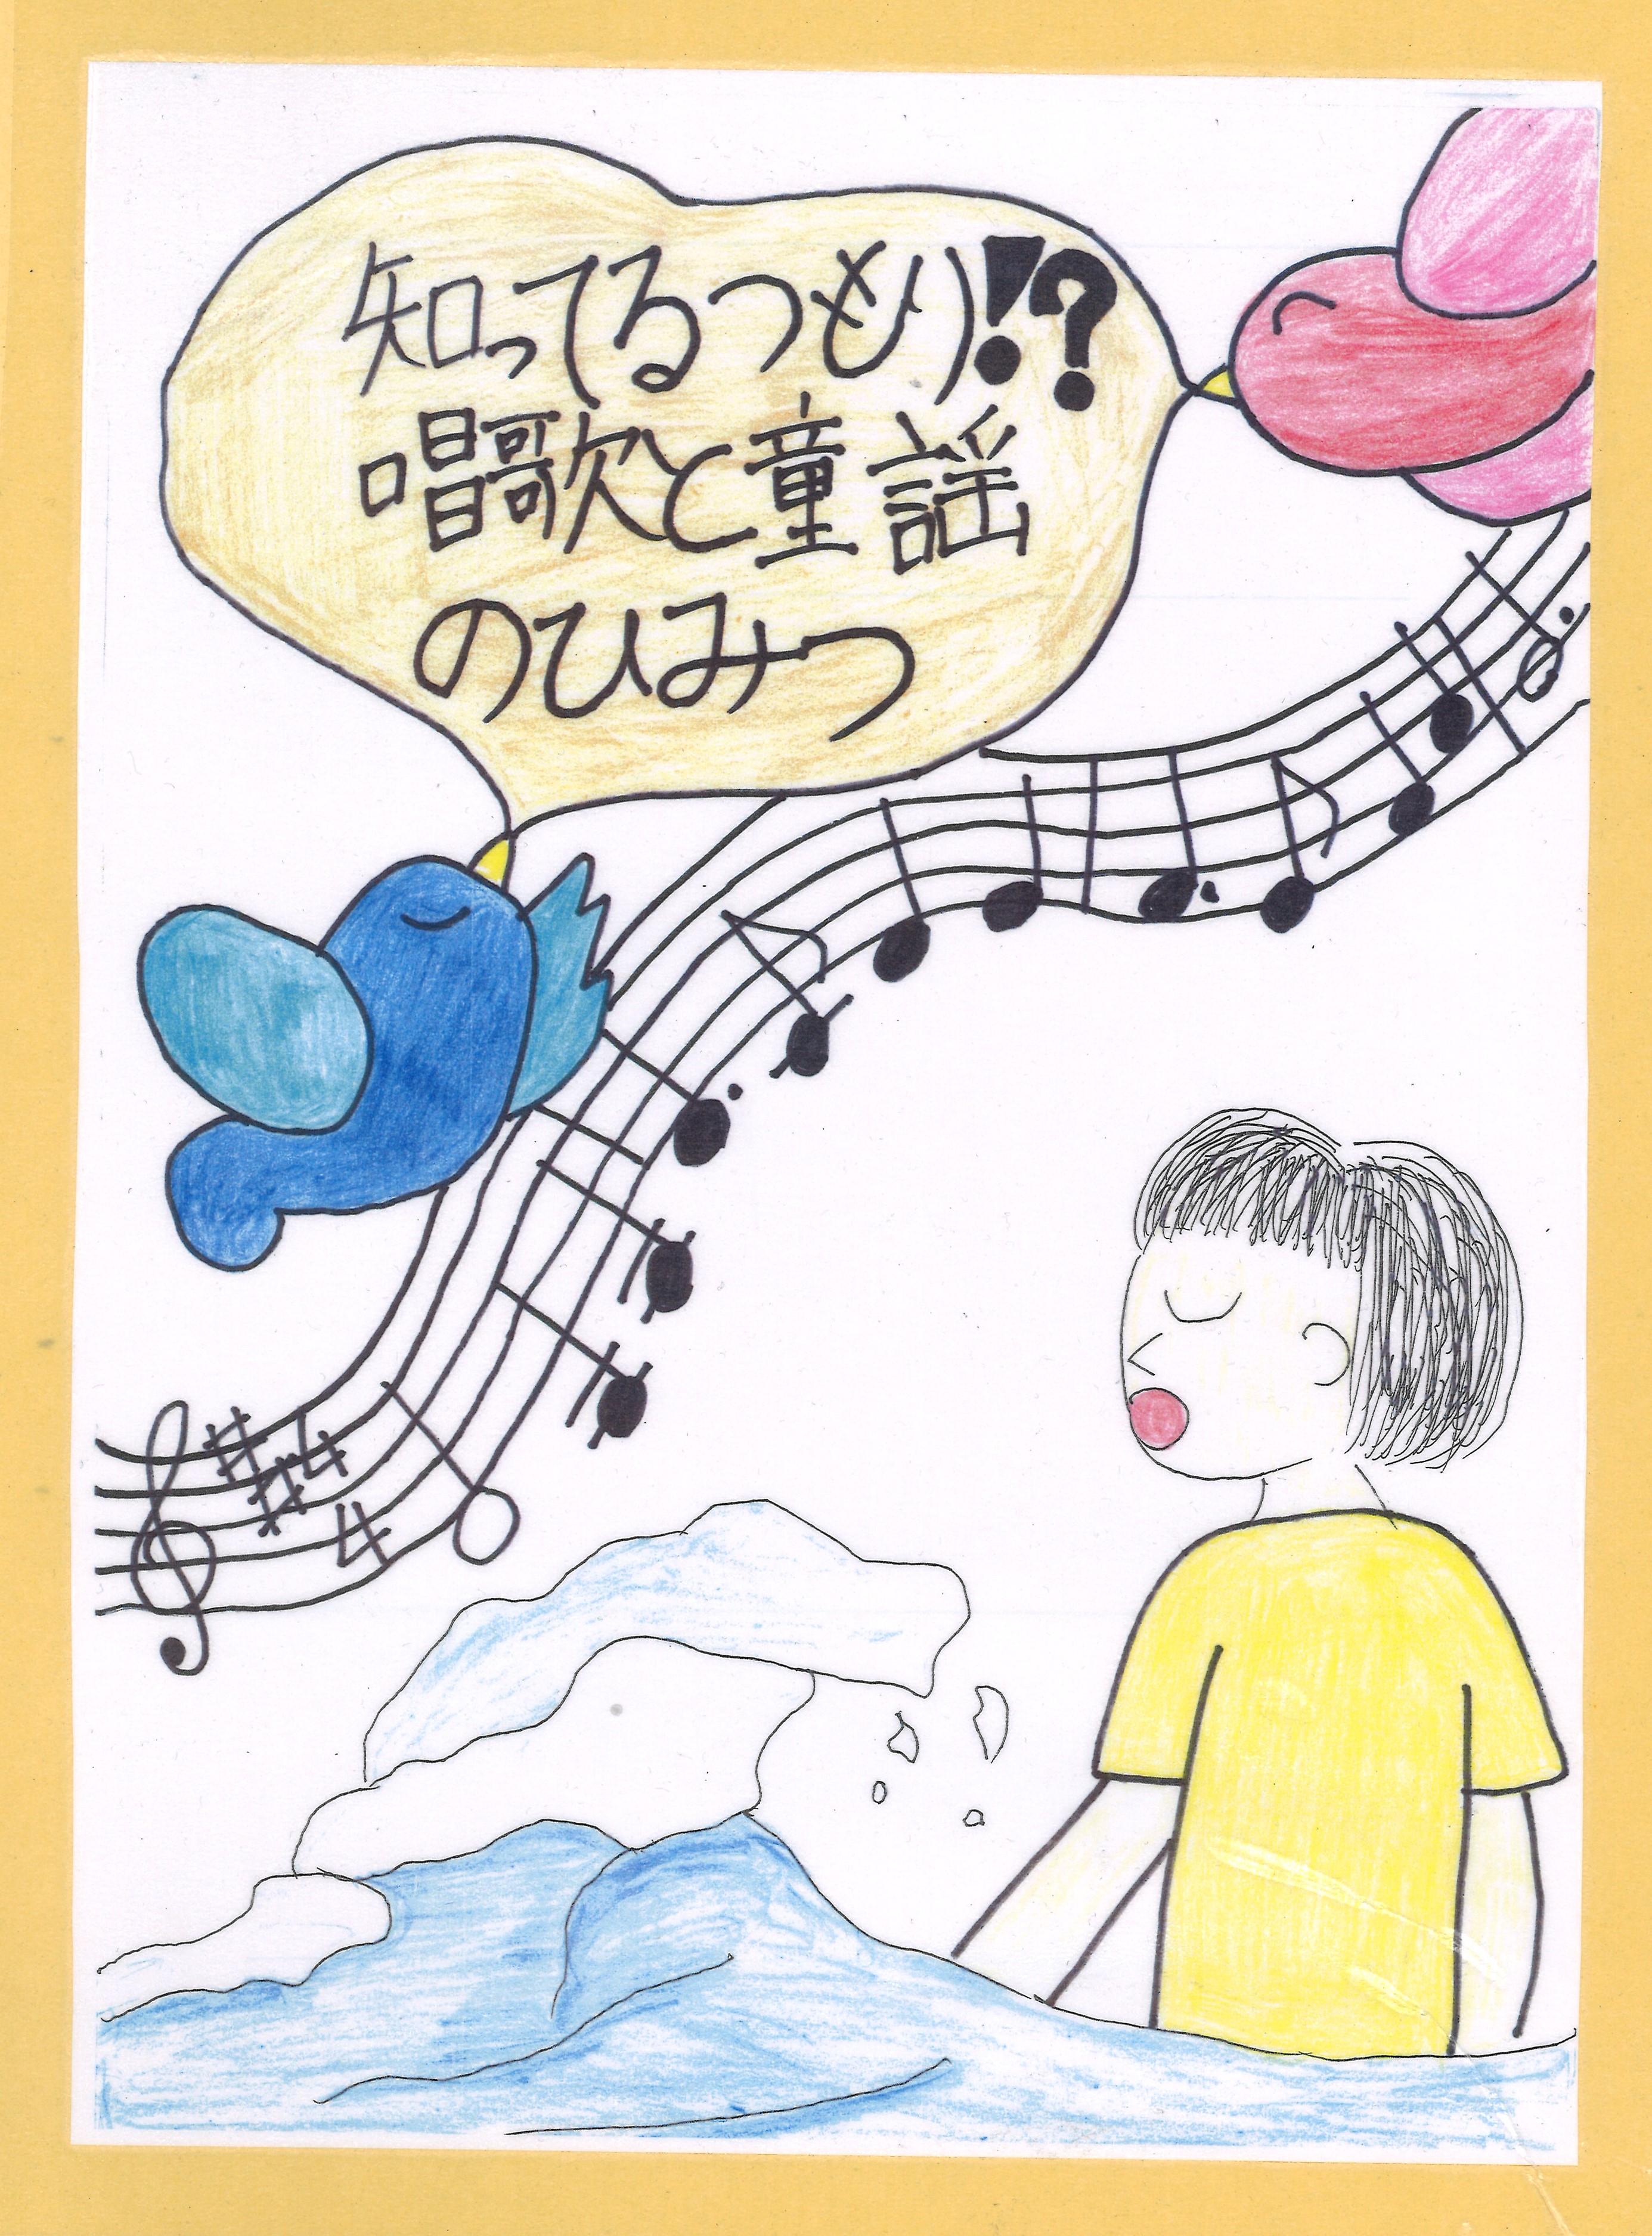 知ってるつもり!?
唱歌と童謡
のひみつ
4
4